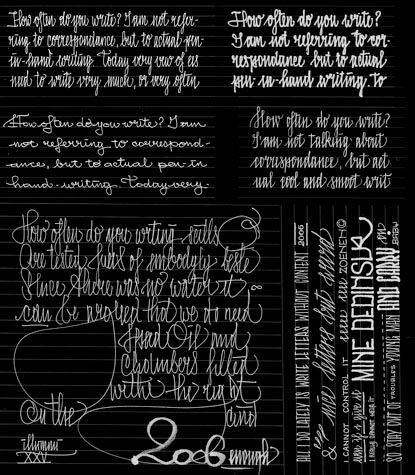 How often do you write? I am not refer-
ring to correspondance, but to actual pen-
in-hand writing. Today very few of us
need to write very much, or very often
How often do you write?
I am not referring to cor-
respondance but to actual
pen-in-hand writing. To
How often do you write? I am
not referring to correspond-
ance, but to actual pen-in
hand-writing. Today very-
How often do you write?
I am not talking about
correspondance, but act
ual cool and smoot writ
How often do you writing skills
Are tested
Since there was no water it
can be proved that we do need
Fossil Oil and
Chambers filled
with the right
On the
kind
XXV
2006 enough
ALL I DO LATELY IS WRITE LETTERS WITHOUT CONTENT. 2006
I see nine letters but
I CANNOT CONTROL IT ZOENEN ©
MINE DEDINSUK
I REALLY CANNOT HELP IT
SO STAY OUT OF TROUBLES YOUNG MAN AND BARRY
BABY